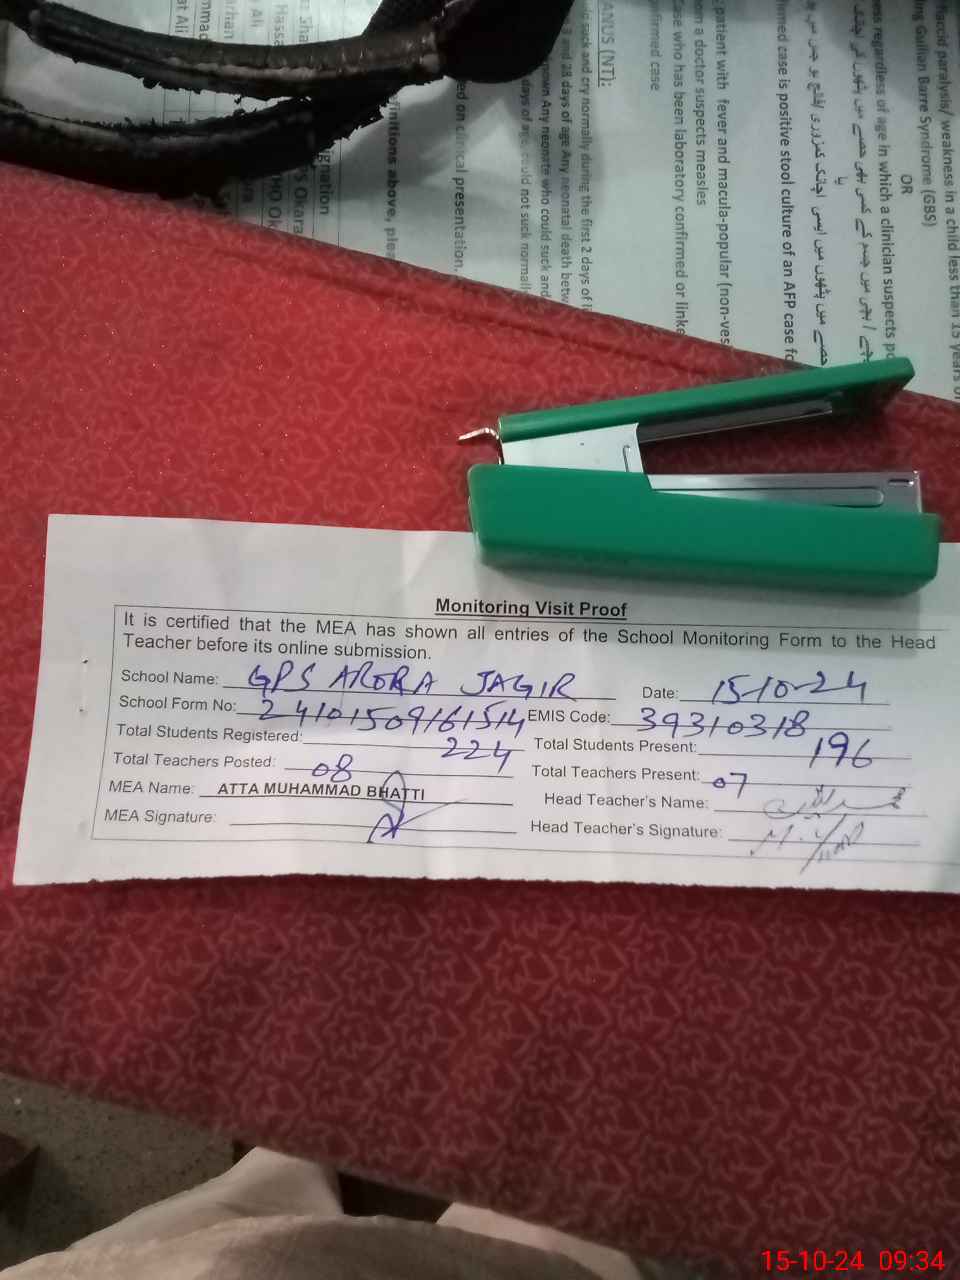 flaccid paralysis/ weakness in a child less than 15 years of
ng Guillian Barre Syndrome (GBS)
OR
ness regardless of age in which a clinician suspects po
یا
med case is positive stool culture of an AFP case fo
patient with fever and macula-popular (non-ves
om a doctor suspects measles
Case who has been laboratory confirmed or linke
nfirmed case
ANUS (NT):
d suck and cry normally during the first 2 days of li
3 and 28 days of age Any neonatal death betw
nown Any neonate who could suck and
days of age, could not suck normall
ed on clinical presentation.
finitions above, plea
ignation
Okara
Monitoring Visit Proof
It is certified that the MEA has shown all entries of the School Monitoring Form to the Head
Teacher before its online submission.
School Name: GPS ARORA JAGIR Date: 15-10-24
School Form No: 24101509161514 EMIS Code: 39310318
Total Students Registered: 224 Total Students Present: 196
Total Teachers Posted: 08 Total Teachers Present: 07
MEA Name: ATTA MUHAMMAD BHATTI Head Teacher's Name:
MEA Signature: Head Teacher's Signature:
15-10-24 09:34